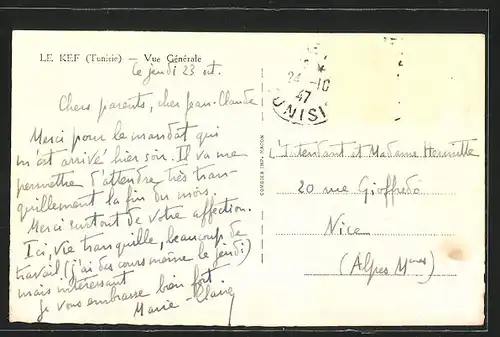 LE KEF (Tunisie) — Vue Générale
le jeudi 23 oct.
Chers parents, cher Jean-Claude
Merci pour le mandat qui
m'est arrivé hier soir. Il va me
permettre d'attendre très tran-
quillement la fin du mois.
Merci surtout de votre affection.
Ici, vie tranquille, beaucoup de
travail (j'ai des cours même le jeudi)
mais intéressant
Je vous embrasse bien fort
Marie-Claire
COMBIER IMP. MACON
24-10
47
UNISI
L'Intendant et Madame Henriette
20 rue Gioffredo
Nice
(Alpes Mmes)